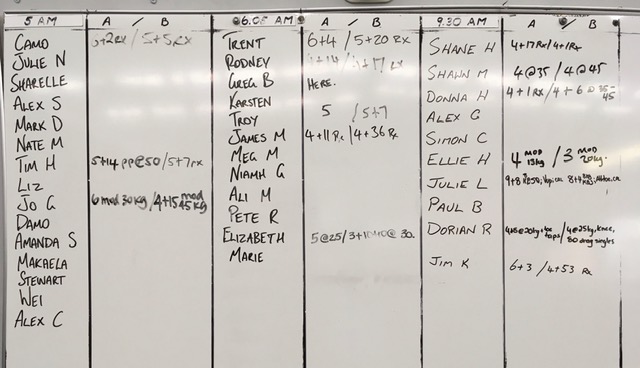 5 AM A / B
CAMO 5+2RX / 5+5 RX
JULIE N
SHARELLE
ALEX S
MARK D
NATE M
TIM H 5+14 PP@50 / 5+7 RX
LIZ
JO G 6 mod 30kg / 4+15 mod 45kg
DAMO
AMANDA S
MAKAELA
STEWART
WEI
ALEX C
6.05 AM A / B
TRENT 6+4 / 5+20 RX
RODNEY
GREG B HERE.
KARSTEN
TROY 5 / 5+7
JAMES M 4+11 Rx / 4+36 Rx
MEG M
NIAMH G
ALI M
PETE R
ELIZABETH 5@25 / 3+10 @ 30.
MARIE
9.30 AM A / B
SHANE H 4+17 Rx / 4+1 Rx
SHAWN M 4@35 / 4@45
DONNA H 4+1 RX / 4+6 @ 35-45
ALEX G
SIMON C
ELLIE H 4 MOD 15kg / 3 MOD 20kg.
JULIE L 9+8
PAUL B
DORIAN R / 4@25kg, knee, 50 drag singles
JIM K 6+3 / 4+53 Rx